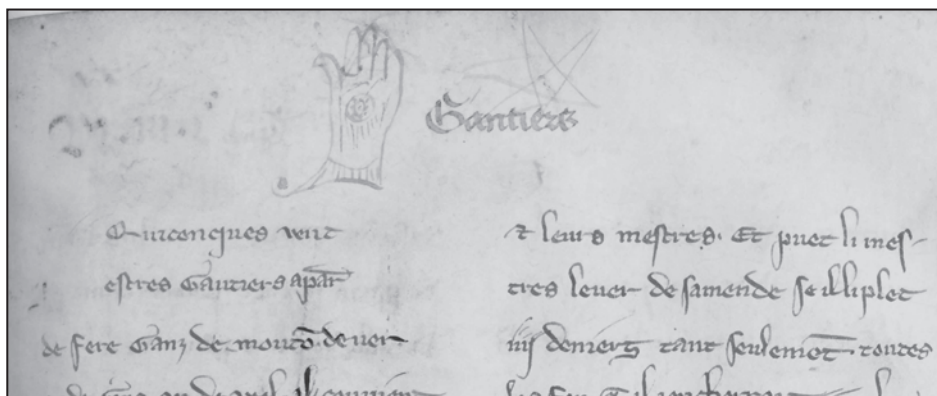 Gantiers
Quiconques veut
estres Gantiers a par
de fere Ganz de mouto de ver
& leurs mestres. Et puet li mes-
tres lever de samende se il li plet
iiij deniers tant seulemet toutes